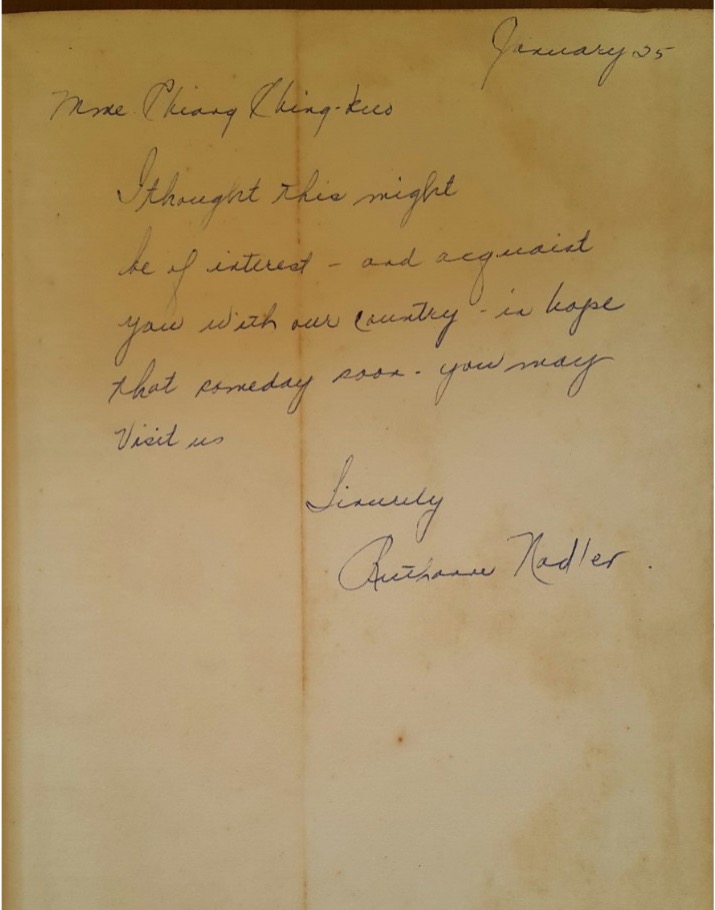 January 25
Mme. Chiang Ching-Kuo
I thought this might
be of interest - and acquaint
you with our country - in hope
that someday soon - you may
Visit us
Sincerely
Ruthanne Nadler.